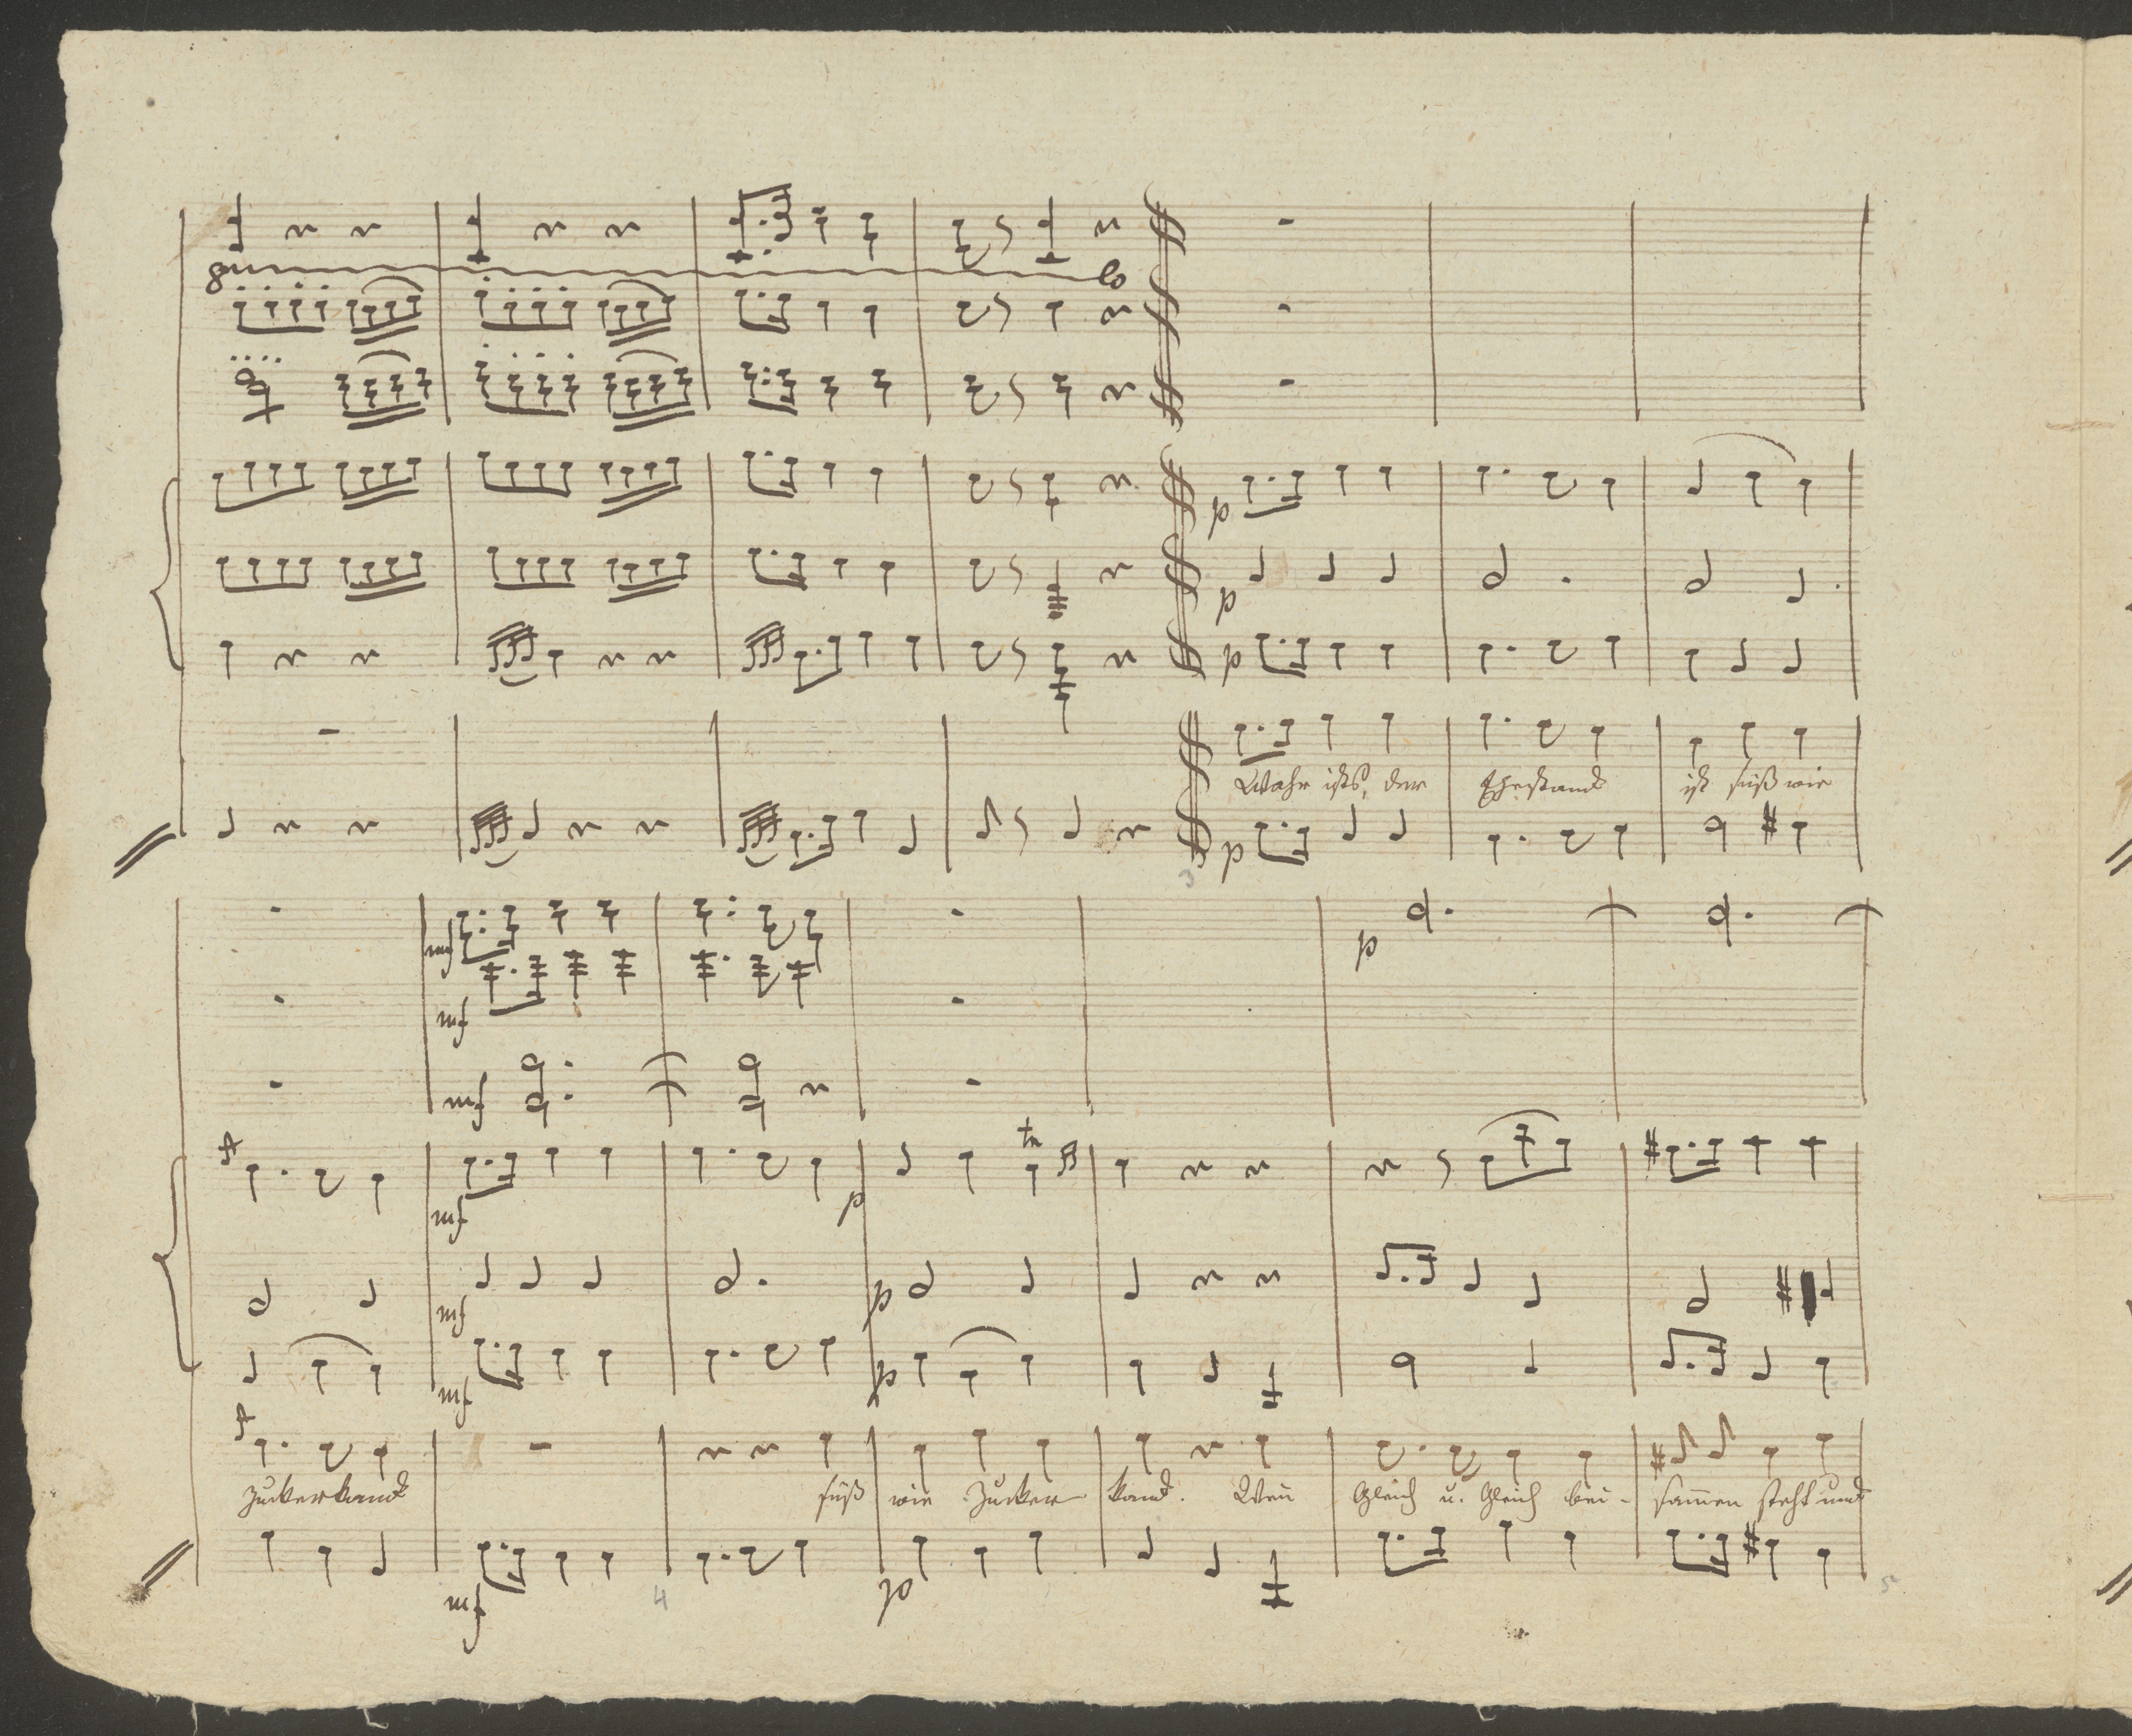 8 lo
p
p
p
Wahr ists, der Ehestand ist süß wie
p
3
mf
p
mf
mf
tr
mf p
mf p
mf p
Zuckerkand süß wie Zucker kand. Weñ Gleich u. Gleich bei- sam̄en steht und
mf p
4 5